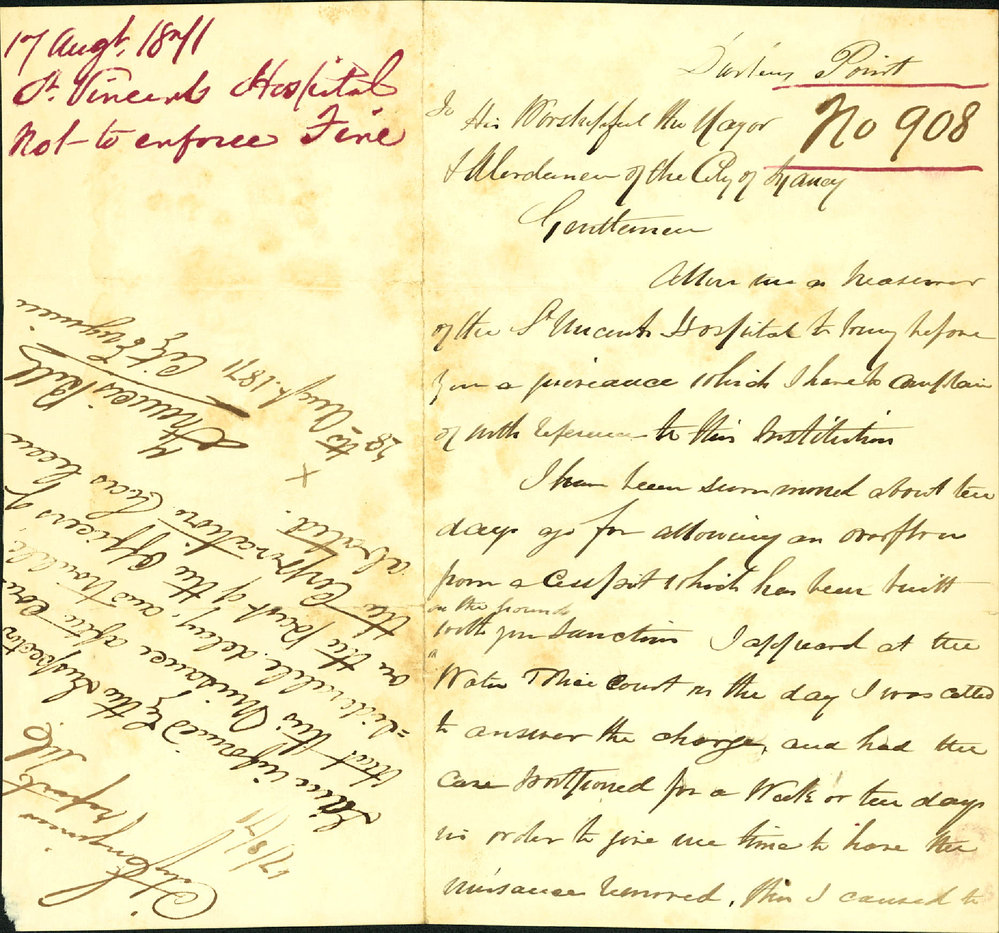 17 Augt. 1871
St. Vincents Hospital
Not to enforce Fine
Darling Point
No 908
To His Worshipful the Mayor
& Aldermen of the City of Sydney
Gentlemen
Allow me as Treasurer
of the St Vincents Hospital to bring before
you a grievance which I have to complain
of with reference to this Institution
I have been summoned about ten
days ago for allowing an overflow
from a Cesspit which has been built
in the grounds
with your sanction I appeared at the
Water Police Court on the day I was called
to answer the charge, and had the
case postponed for a Week or ten days
in order to give me time to have the
nuisance removed, this I caused to
City Engineer
Report
17/8/71
I am informed by the Inspector
that this Nuisance after con
=siderable delay, and trouble
on the part of the Officers of
the Corporation has been
abated.
X
Francis Bell
City Engineer
Augt. 1871